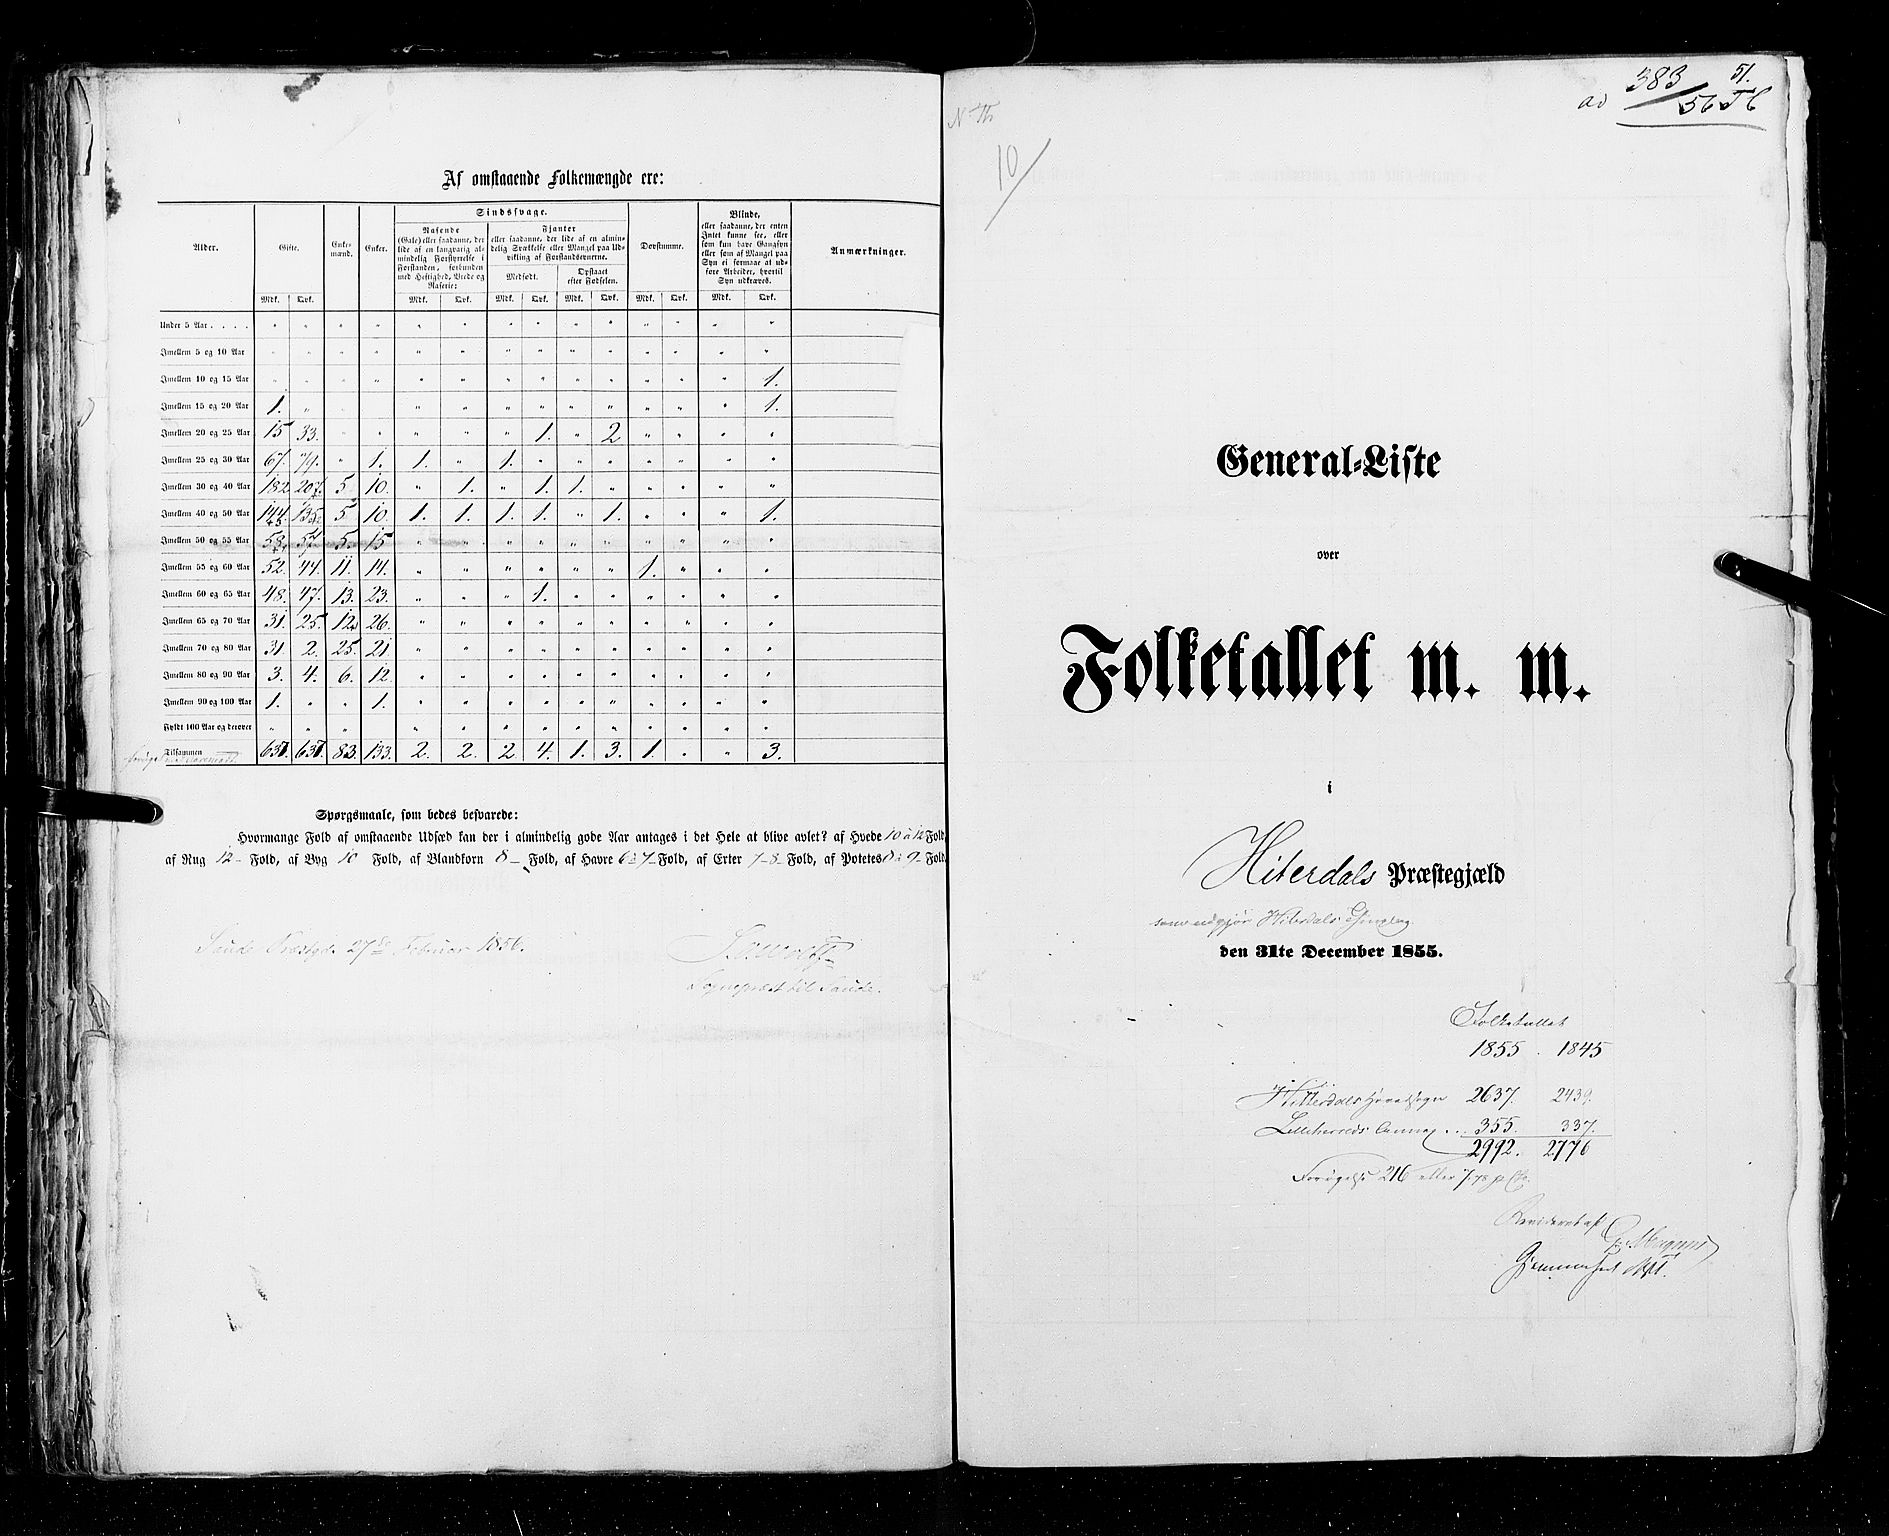 Af omstaaende Folkemængde ere:
Alder. Gifte. Enkemænd. Enker. Sindssvage. Døvstumme. Blinde, Anmærkninger.
Rasende (Gale) eller saadanne, der lide af en langvarig almindelig Forstyrrelse i Forstanden, forbunden med Heftighed, Vrede og Raserie:
Fjanter eller saadanne, der lide af en almindelig Svækkelse eller Mangel paa Udvikling af Forstandsevnerne.
Medfødt. Opstaaet efter Fødselen.
eller saadanne, der enten Intet kunne see, eller som kun have Gangsyn eller som af Mangel paa Syn ei formaae at udføre Arbeider, hvortil Syn udkræves.
Mdk. Qvk. Mdk. Qvk. Mdk. Qvk. Mdk. Qvk. Mdk. Qvk. Mdk. Qvk.
Under 5 Aar . . . . " " " " " " " " " " " " " "
Imellem 5 og 10 Aar " " " " " " " " " " " " " "
Imellem 10 og 15 Aar " " " " " " " " " " " " " 1.
Imellem 15 og 20 Aar 1. " " " " " " " " " " 1.
Imellem 20 og 25 Aar 15 33. " " " " " 1. " 2 " " " "
Imellem 25 og 30 Aar 67. 79. " 1. 1. " 1. " " " " " " "
Imellem 30 og 40 Aar 182 207. 5 10. " 1. " 1. 1. " " " " "
Imellem 40 og 50 Aar 144 135 5 10. 1. 1. 1. 1. " 1. " " " 1.
Imellem 50 og 55 Aar 58 57 5. 15 " " " " " " " " " "
Imellem 55 og 60 Aar 52. 44. 11. 14. " " " " " " 1. " " "
Imellem 60 og 65 Aar 48. 47. 13. 23. " " " 1. " " " " " "
Imellem 65 og 70 Aar 31. 25. 12 26. " " " " " " " " " "
Imellem 70 og 80 Aar 31. 2. 25. 21. " " " " " " " " " "
Imellem 80 og 90 Aar 3. 4. 6. 12. " " " " " " " " " "
Imellem 90 og 100 Aar 1. " " 1. " " " " " " " " " "
Fyldt 100 Aar og derover " " " " " " " " " " " " "
Tilsammen 83. 133. 2. 2. 2. 4. 1. 3. 1. " " 3.
Spørgsmaale, som bedes besvarede:
Hvormange Fold af omstaaende Udsæd kan der i almindelig gode Aar antages i det Hele at blive avlet? af Hvede 10 à 12 Fold,
af Rug 12 – Fold, af Byg 10 Fold, af Blandkorn 8 – Fold, af Havre 6 à 7 – Fold, af Erter 7–8 Fold, af Potetes 8 à 9 – Fold.
Saude Præstegd. 27de Februar 1856.
Sognepræst til Saude.
ad 383/56
51.
10/
General-Liste
over
Folketallet m. m.
i
Hiterdals Præstegjæld
som udgjør Hiterdals Thinglag
den 31te December 1855.
Folketallet
1855 . 1845
Hitterdals Hovedsogn 2637. 2439.
Lilleherreds Annex . . 355. 337.
2992. 2776
Forøgelse 216 eller 7,78 pCt.
Revideret af
Gjennemseet